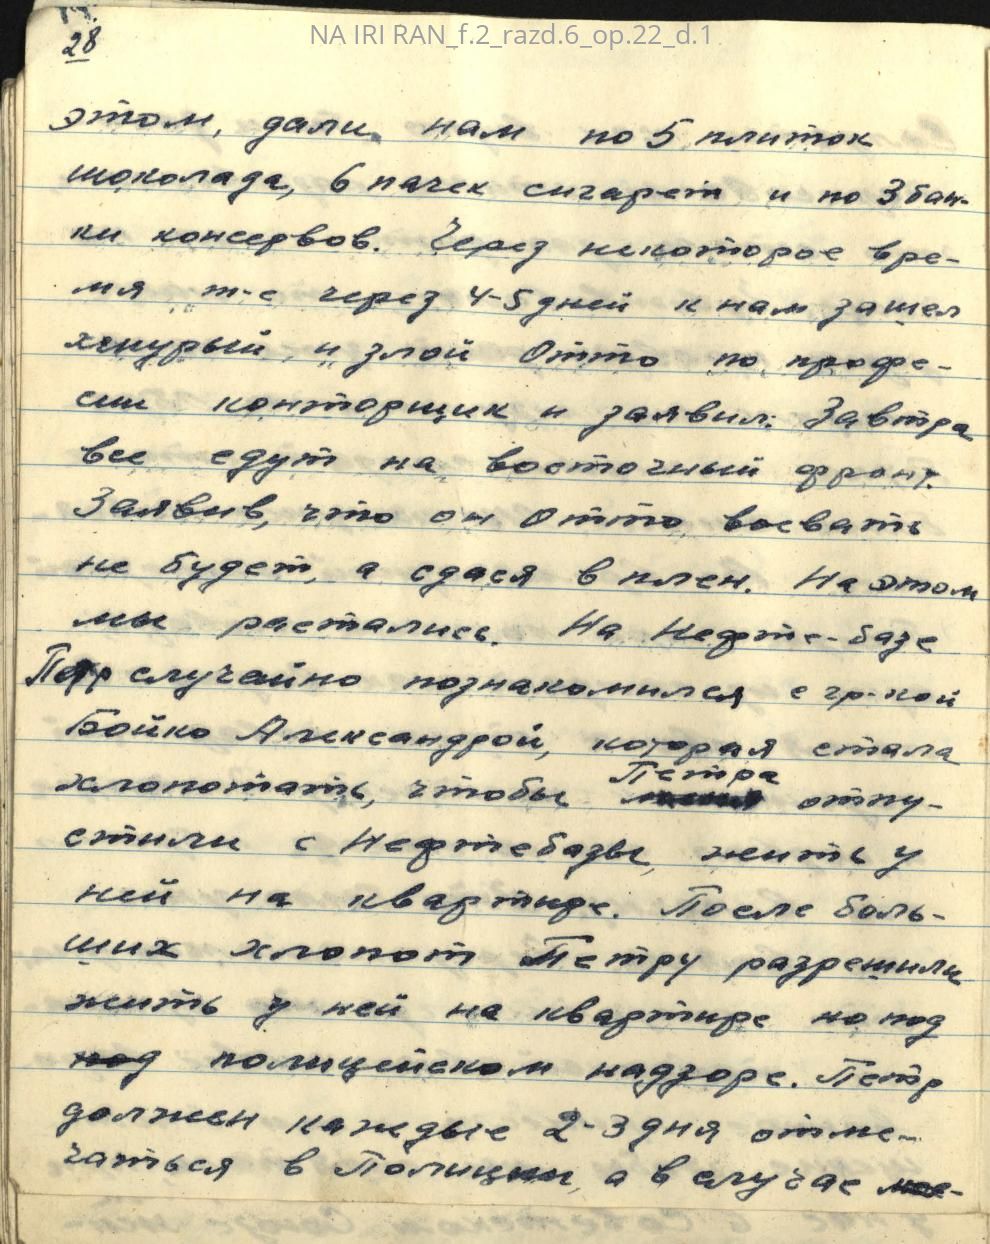 NA IRI RAN_f.2_razd.6_op.22_d.1
28
этом, дали нам по 5 плиток
шоколада, 6 пачек сигарет и по 3 бан-
ки консервов. Через некоторое вре-
мя т-е через 4-5 дней к нам зашел
хмурый и злой Отто по профе-
сии конторщик и заявил: Завтра
все едут на восточный фронт.
Заявив, что он Отто воевать
не будет, а сдася в плен. На этом
мы растались. На Нефте-базе
Петр случайно познакомился с гр-кой
Бойко Александрой, которая стала
Петра
хлопотать, чтобы отпу-
стили с Нефтебазы, жить у
ней на квартире. После боль-
ших хлопот Петру разрешили
жить у ней на квартире но под
под полицейском надзоре. Петр
должен каждые 2-3 дня отме-
чаться в Полиции, а в случае